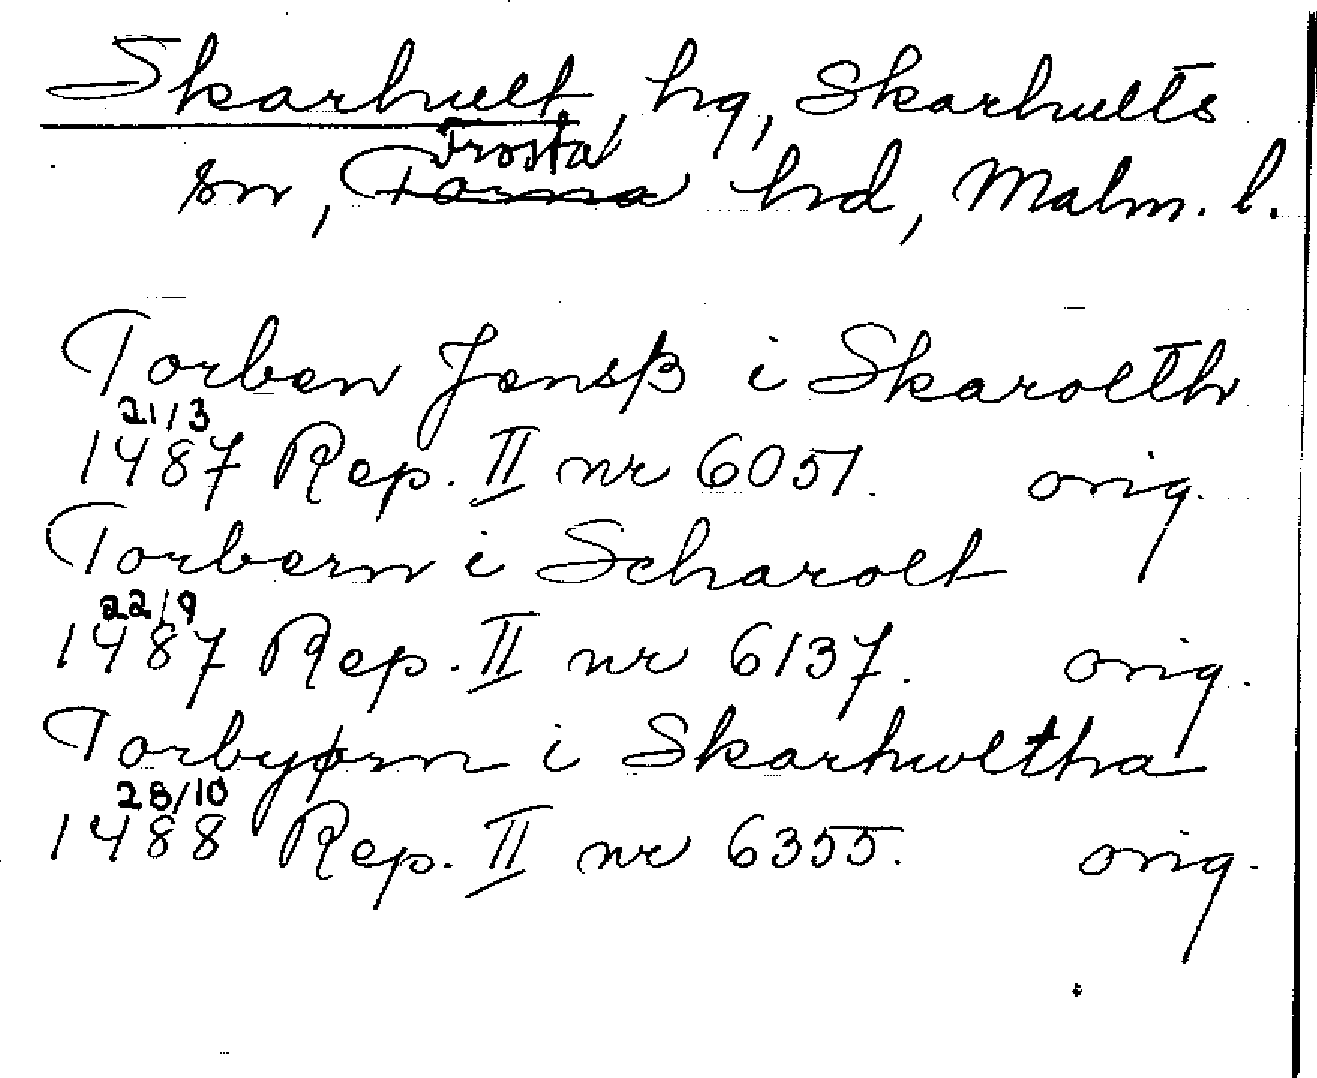 Skarhult, hg, Skarhults
Trosta
sn, Torna hrd, Malm. l.
Torben Jensß i Skarolth
21/3
1487 Rep. II nr 6051. orig.
Torbern i Scharolt
22/9
1487 Rep. II nr 6137. orig.
Torbyørn i Skarhwltha
28/10
1488 Rep. II nr 6355. orig.